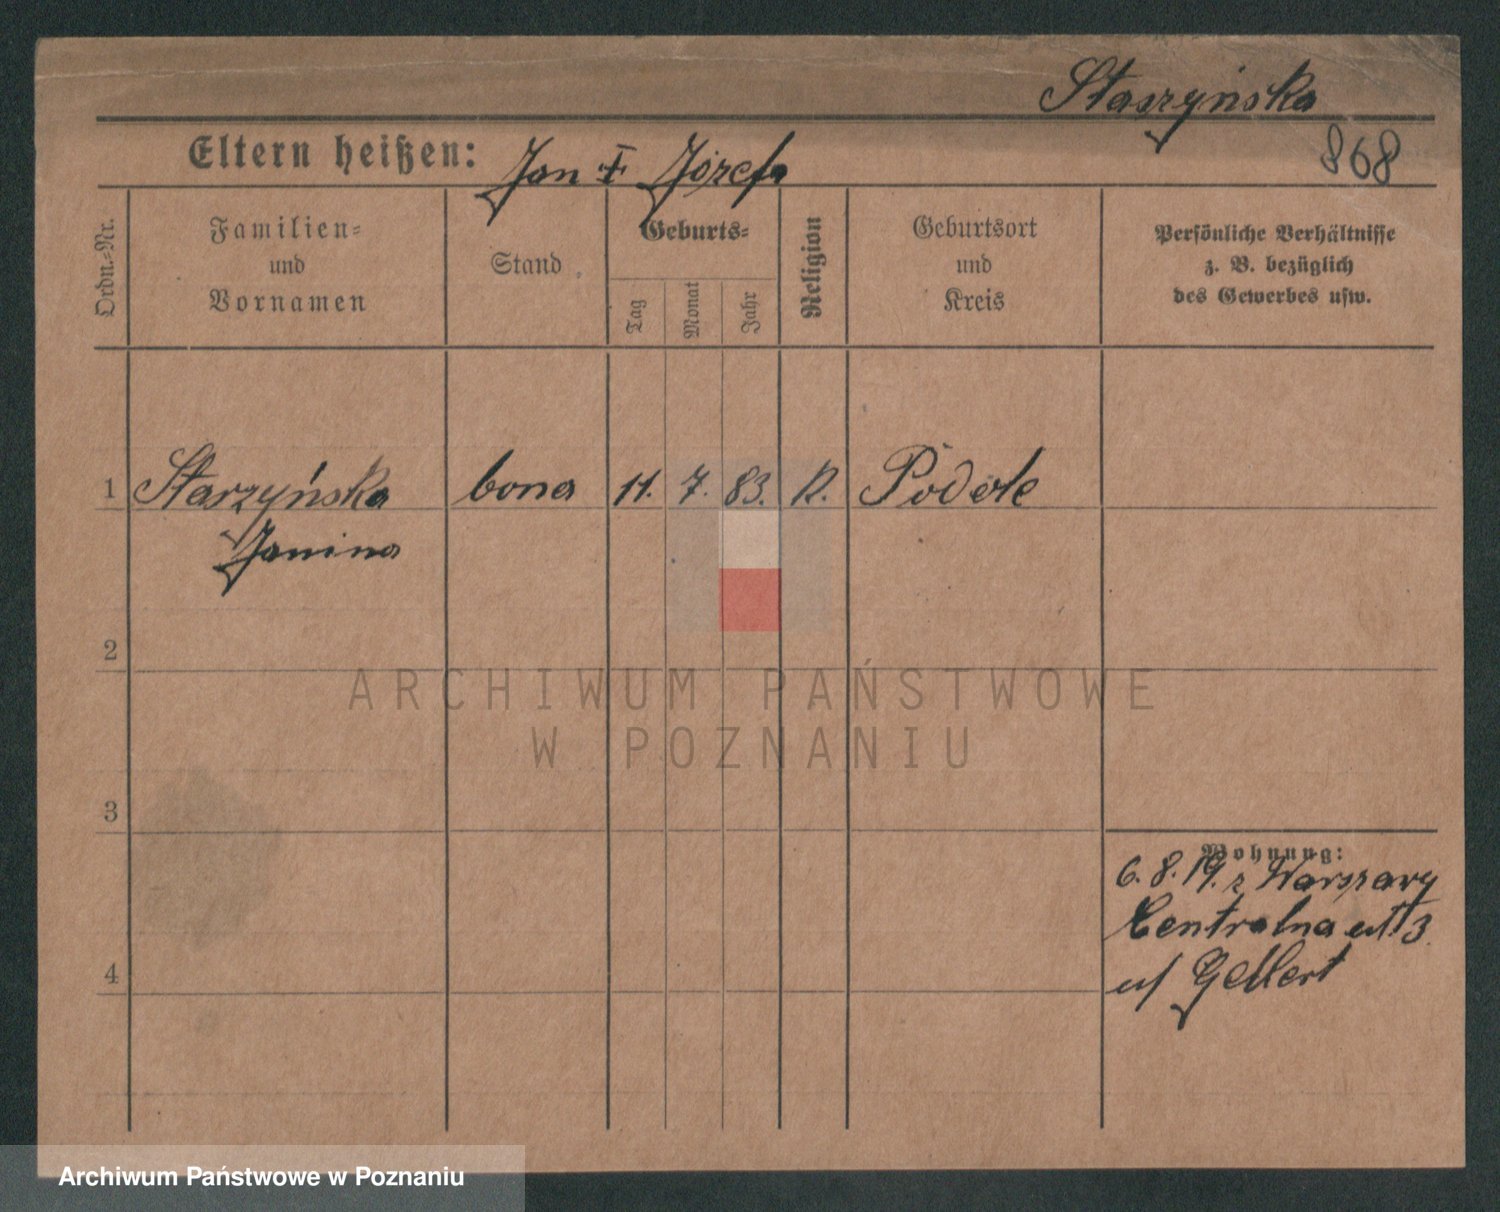 Starzyńska
Eltern heißen: Jan + Józefa
868
Ordn.=Nr.
Familien=
und
Vornamen
Stand
Geburts=
Tag
Monat
Jahr
Religion
Geburtsort
und
Kreis
Persönliche Verhältnisse
z. B. bezüglich
des Gewerbes usw.
1 Starzyńska bona 11. 7. 83. R. Podole
Janina
2
3
4
Wohnung:
6.8.19. z Warszawy
Centralna 3
Gellert
ARCHIWUM PAŃSTWOWE
W POZNANIU
Archiwum Państwowe w Poznaniu